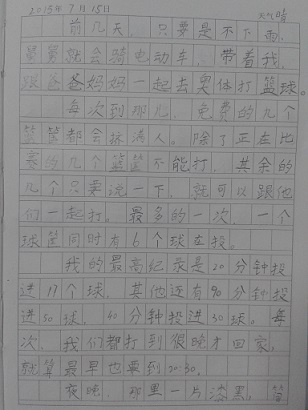 2015年7月15日 天气晴
前几天，只要是不下雨，
舅舅就会骑电动车，带着我
跟爸爸妈妈一起去奥体打篮球。
每次到那儿，免费的几个
篮筐都会挤满人。除了正在比
赛的几个篮筐不能打，其余的
几个只要说一下，就可以跟他
们一起打。最多的一次，一个
球筐同时有6个球在投。
我的最高纪录是20分钟投
进17个球，其他还有90分钟投
进50球，40分钟投进30球。每
次，我们都打到很晚才回家，
就算最早也要到20:30。
夜晚，那里一片漆黑，篮